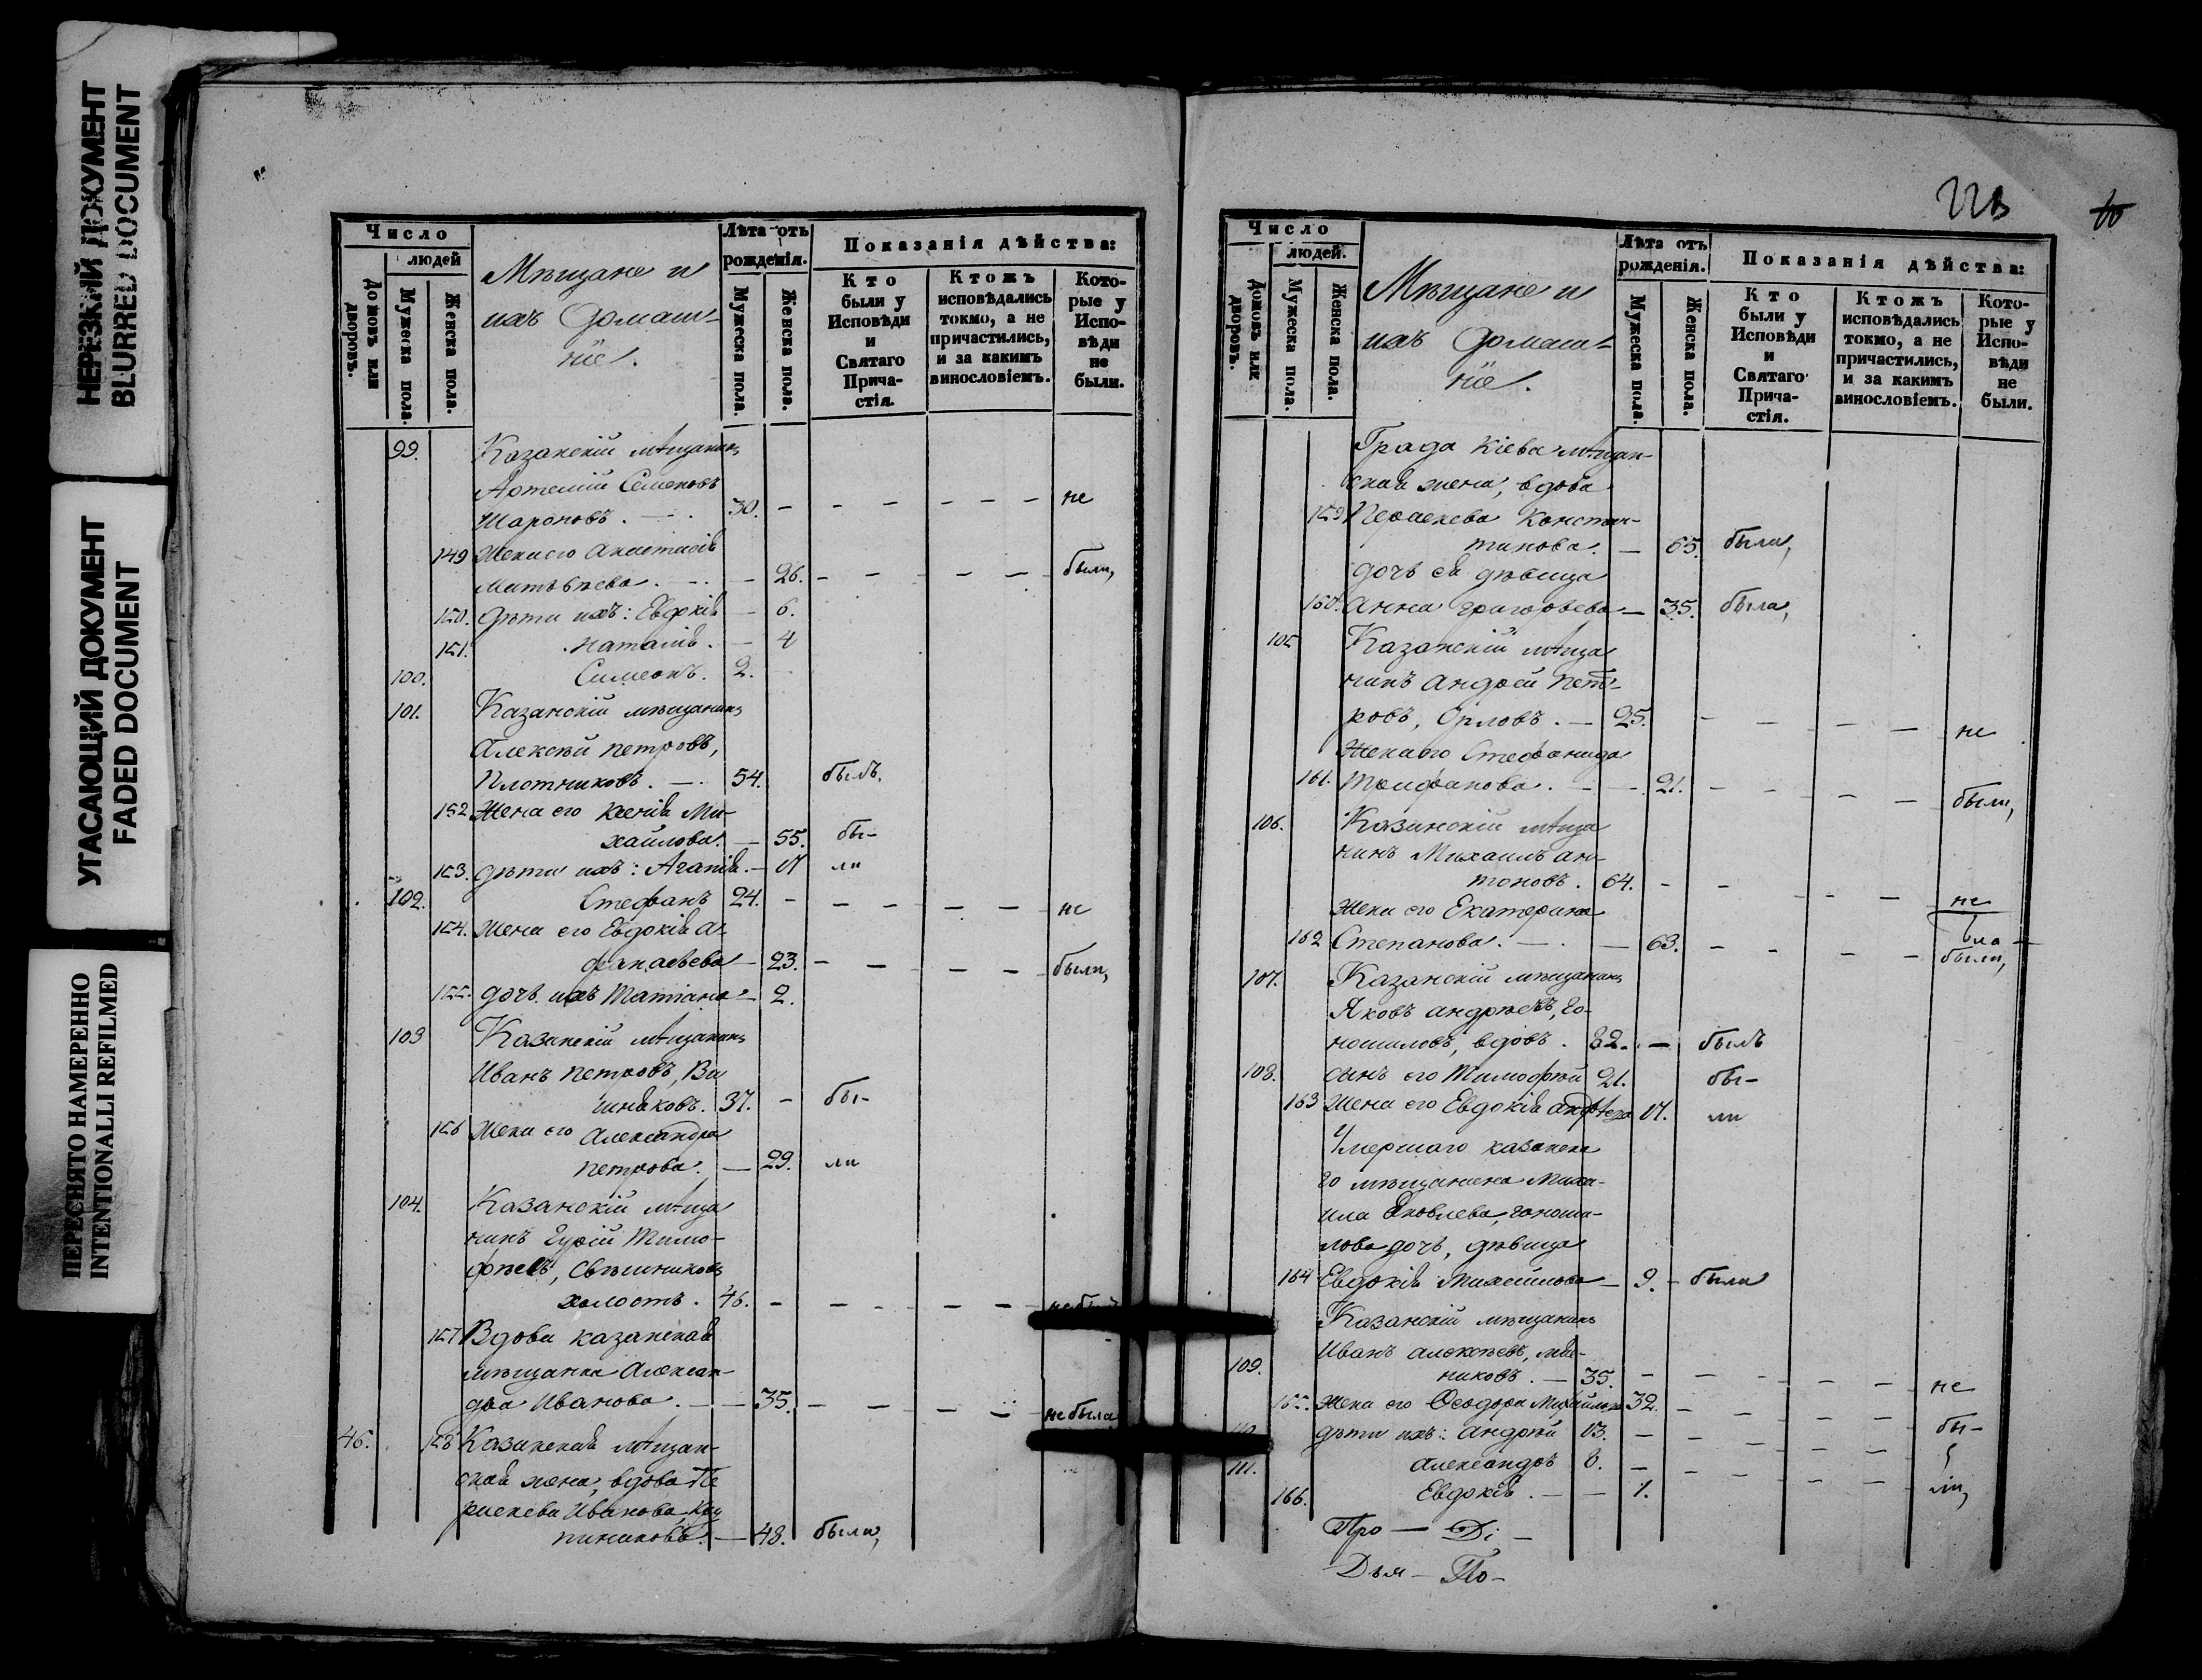 НЕРЕЗКИЙ ДОКУМЕНТ
BLURRED DOCUMENT
УГАСАЮЩИЙ ДОКУМЕНТ
FADED DOCUMENT
ПЕРЕСНЯТО НАМЕРЕННО
INTENTIONALLI REFILMED
Число
людей
Домовъ или дворовъ.
Мужеска пола.
Женска пола.
Мѣщане и
ихъ домаш-
ніе.
Лѣта отъ
рожденія.
Мужеска пола.
Женска пола.
Показанія дѣйства:
Кто были у Исповѣди и Святаго Прича-стія.
Ктожъ исповѣдались токмо, а не причастились, и за какимъ винословіемъ.
Кото-рые у Испо-вѣди не были.
99. Казанскій мѣщанинъ
Артемій Семеновъ
Шароновъ. — 30. — — — — — не
149 Жена его Анастасія
Матвѣева. — — 26. — — — — были,
150. дѣти ихъ: Евдокія — 6.
151. Наталія. — 4
100. Симеонъ. 2.
101. Казанскій мѣщанинъ
Алексѣй Петровъ,
Плотниковъ. — 54. былъ.
152 Жена его Ксенія Ми-
хайлова. — 55. бы-
153. дѣти ихъ: Агапія. — 17 ли
102. Стефанъ 24. — — — — — не
154. Жена его Евдокія А-
фанасьева — 23. — — — — были,
155. дочь ихъ Татіана — 2.
103 Казанскій мѣщанинъ
Иванъ Петровъ,
37. — бы-
156 Жена его Александра
Петрова. — 29. ли
104. Казанскій мѣща
нинъ Гурій Тимо-
фѣевъ, Свѣшниковъ
холостъ. 46. — — — — —
157 Вдова казанская
мѣщанка Алексан-
дра Иванова. — — 35. — — — — не была
46. 158 Казанская мѣщан-
ская жена, вдова Па
раскева Иванова,
— 48. была,
Число
людей.
Домовъ или дворовъ.
Мужеска пола.
Женска пола.
Мѣщане и
ихъ домаш-
ніе.
Лѣта отъ
рожденія.
Мужеска пола.
Женска пола.
Показанія дѣйства:
Кто были у Исповѣди и Святаго Прича-стія.
Ктожъ исповѣдались токмо, а не причастились, и за какимъ винословіемъ.
Кото-рые у Испо-вѣди не были.
Града Кіева мѣщан-
ская жена, вдова
159 Параскева Констан-
тинова. — 65. была,
дочь ея дѣвица
160. Анна Григорьева — 35. была,
105 Казанскій мѣща
нинъ Андрей Пет-
ровъ, Орловъ. — 25. — — — — не
Жена его Стефанида
161. Трифанова. — — 21. — — — — — были,
106. Казанскій мѣща
нинъ Михаилъ Ан-
тоновъ. 64. — — — — не
жена его Екатерина
162 Степанова. — — 63. — — — — были,
107. Казанскій мѣщанинъ
Яковъ Андрѣевъ, Го-
ношиловъ, вдовъ. 82. — былъ
108. сынъ его Тимофѣй 21. бы-
163 Жена его Евдокія 17. ли
Умершаго казанска
го мѣщанина Миха-
ила Яковлева, Гоноши-
лова дочь, дѣвица
164 Евдокія Михайлова — 9. — была
Казанскій мѣщанинъ
109. Иванъ Алексѣевъ,
никовъ. — 35. — — — — — не
165. Жена его Ѳеодора Михайлова 32. — — — — — бы-
дѣти ихъ: Андрей 13. — — — — —
111. Александръ 8. — — — — — ли,
166. Евдокія. — — 1.
Про — Ді —
Дья — По-